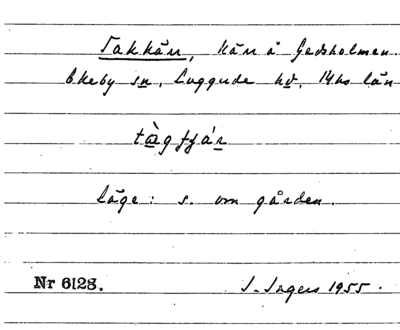 Takkän, kän å Gedsholmen.
Ekeby sn, Luggude hd, Mhs län
tàgfjár
läge: s. om gården.
Nr 6128. J. Ingers 1955.